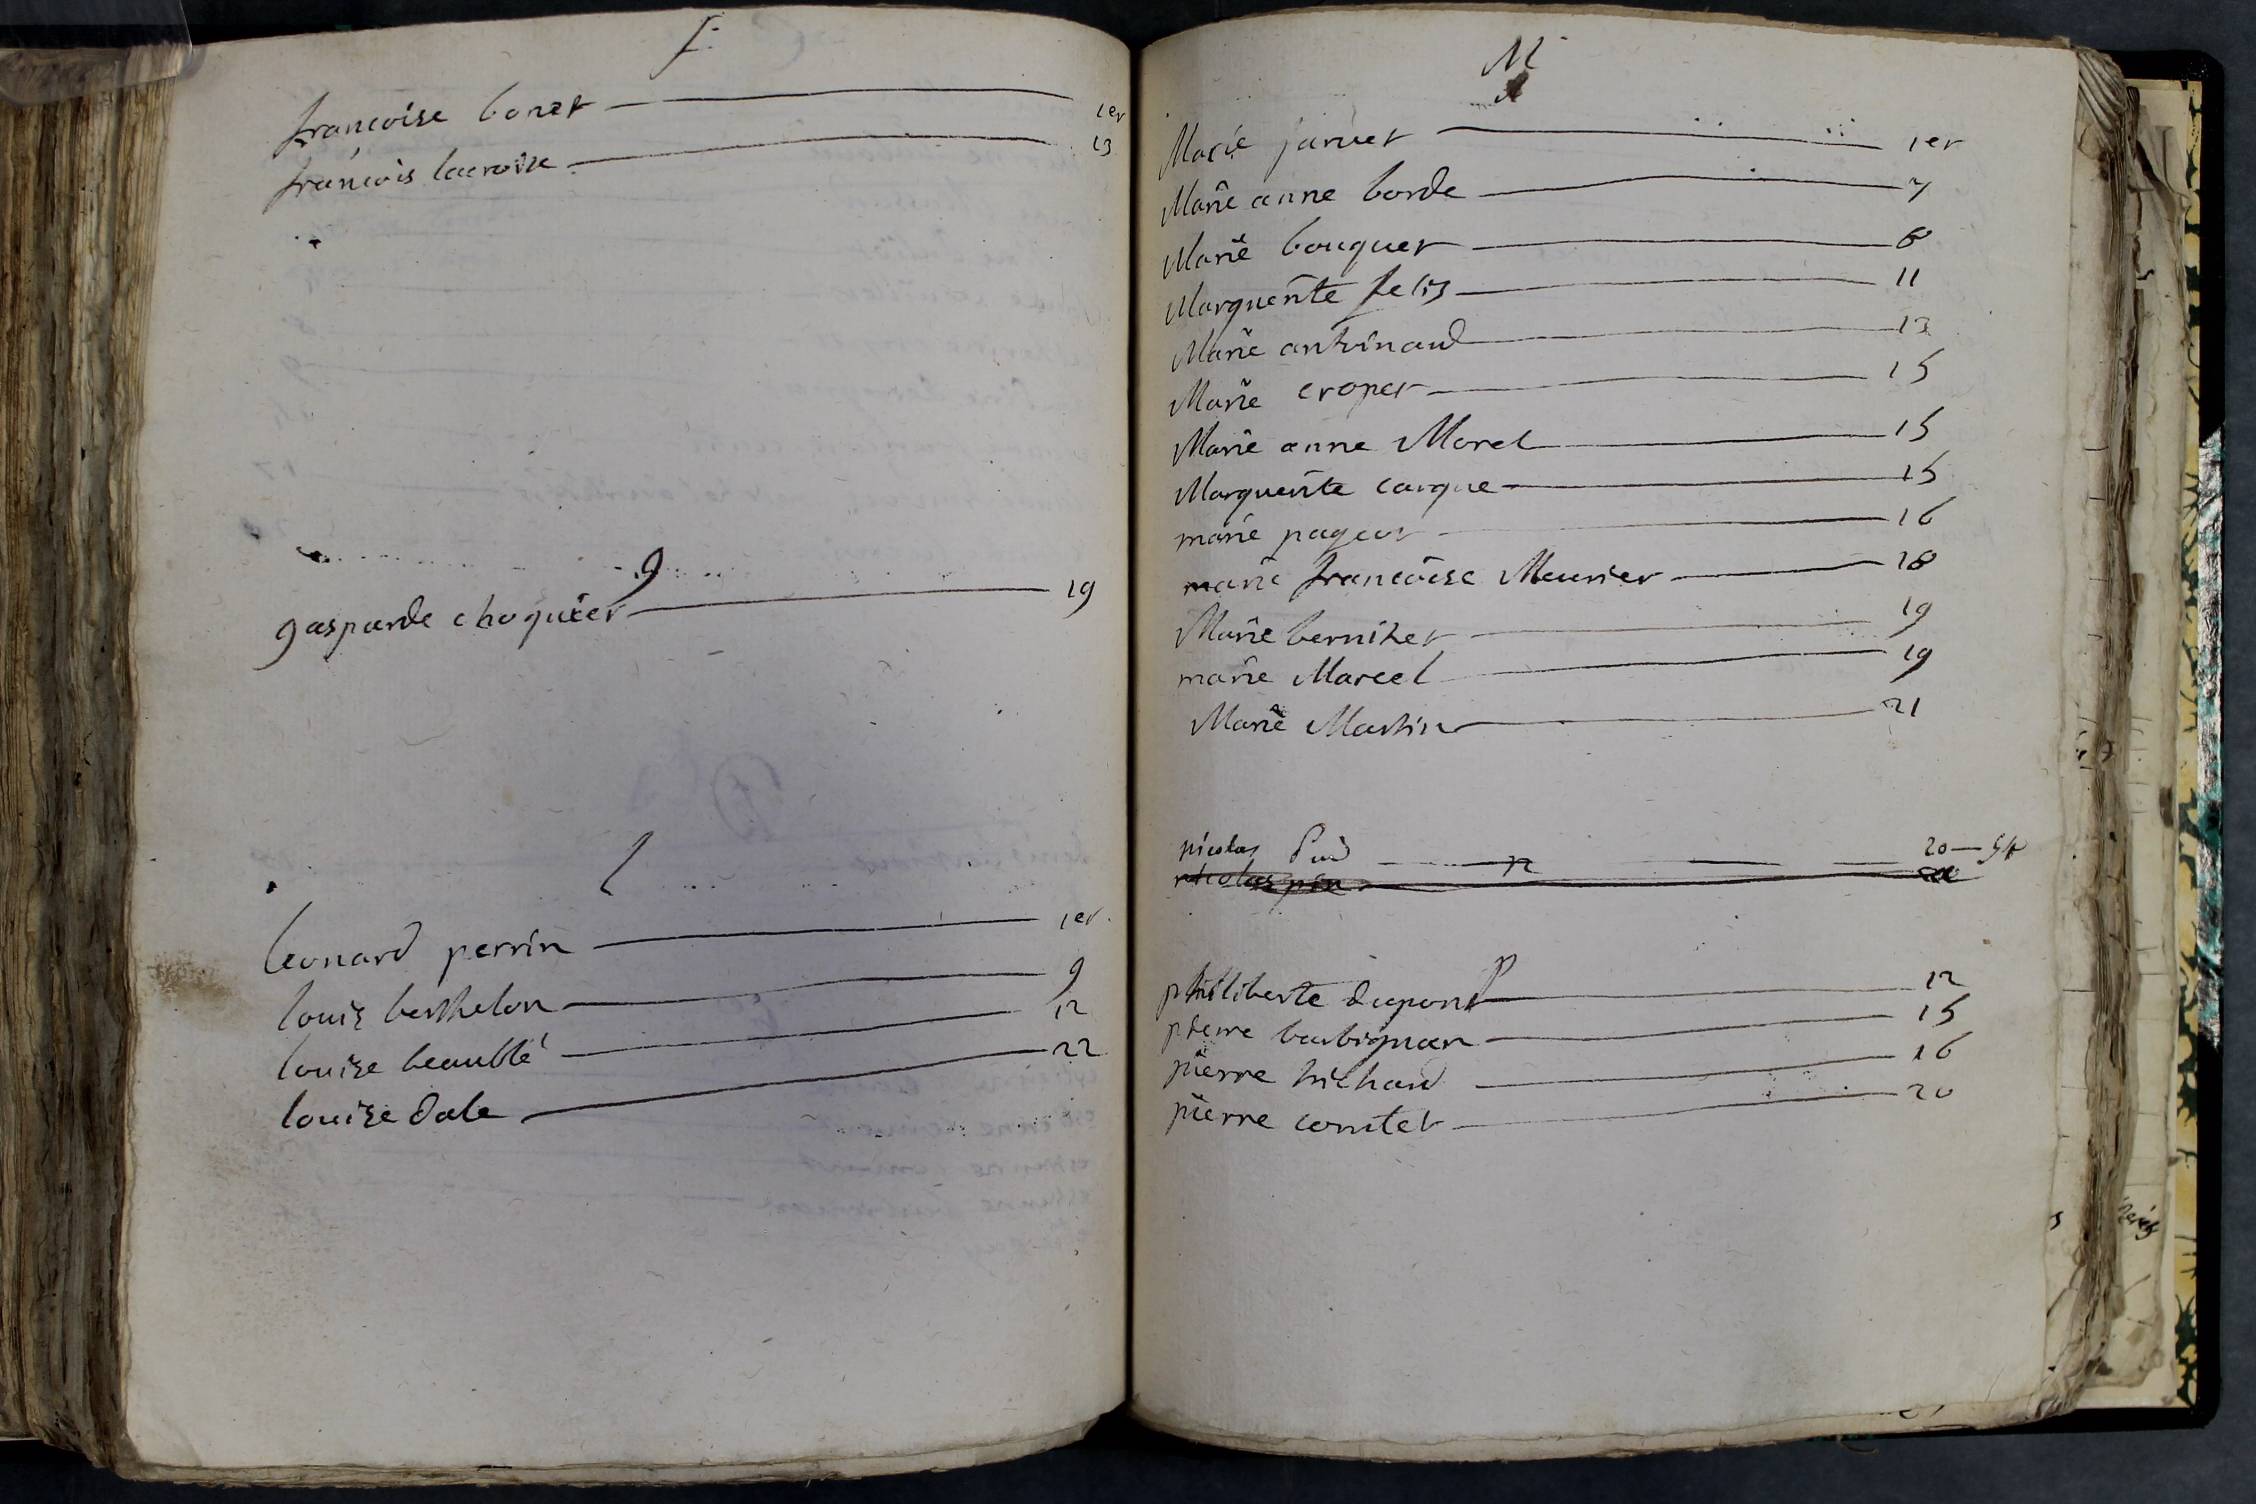 f.
francoise bonet — 1er
françois lacroix — 13
g
gasparde choquier — 19
l
leonard perrin — 1er
louis berthelon — 9
louise beaublé — 12
louise dale — 22
M
Marie jarvet — 1er
Marie anne borde — 7
Marie bouquet — 8
Marguerite felis — 11
Marie antoinaud — 13
Marie cropet — 15
Marie anne Morel — 15
Marguerite carque — 15
marie pageot — 16
marie francoise Meunier — 18
Marie bernizet — 19
marie Marcel — 19
Marie Martin — 21
nicolas — 20 —
n
nicolas pin
p
philiberte dupont — 12
pierre barbignan — 15
pierre trichard — 16
pierre comtet — 20